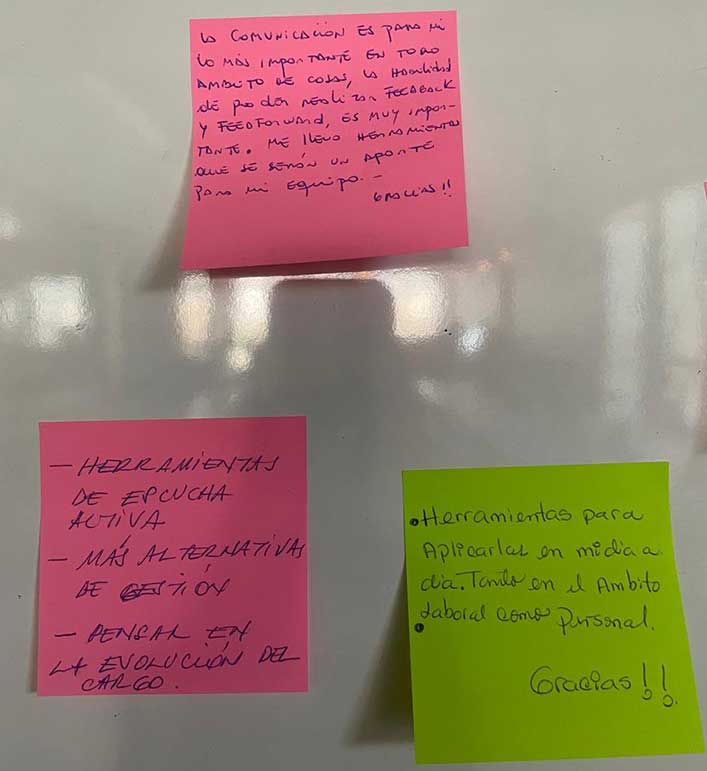 LA COMUNICACIÓN ES PARA MI
LO MÁS IMPORTANTE EN TODO
AMBITO DE COSAS, LA HABILIDAD
DE PODER REALIZAR FEEDBACK
Y FEEDFORWARD, ES MUY IMPOR-
TANTE. ME LLEVO HERRAMIENTAS
QUE SE SERÁN UN APORTE
PARA MI EQUIPO.-
GRACIAS!!
- HERRAMIENTAS
DE ESCUCHA
ACTIVA
- MÁS ALTERNATIVAS
DE GESTIÓN
- PENSAR EN
LA EVOLUCIÓN DEL
CARGO.
• Herramientas para
Aplicarlas en mi dia a
dia. Tanto en el Ambito
Laboral como Personal.
•
Gracias!!